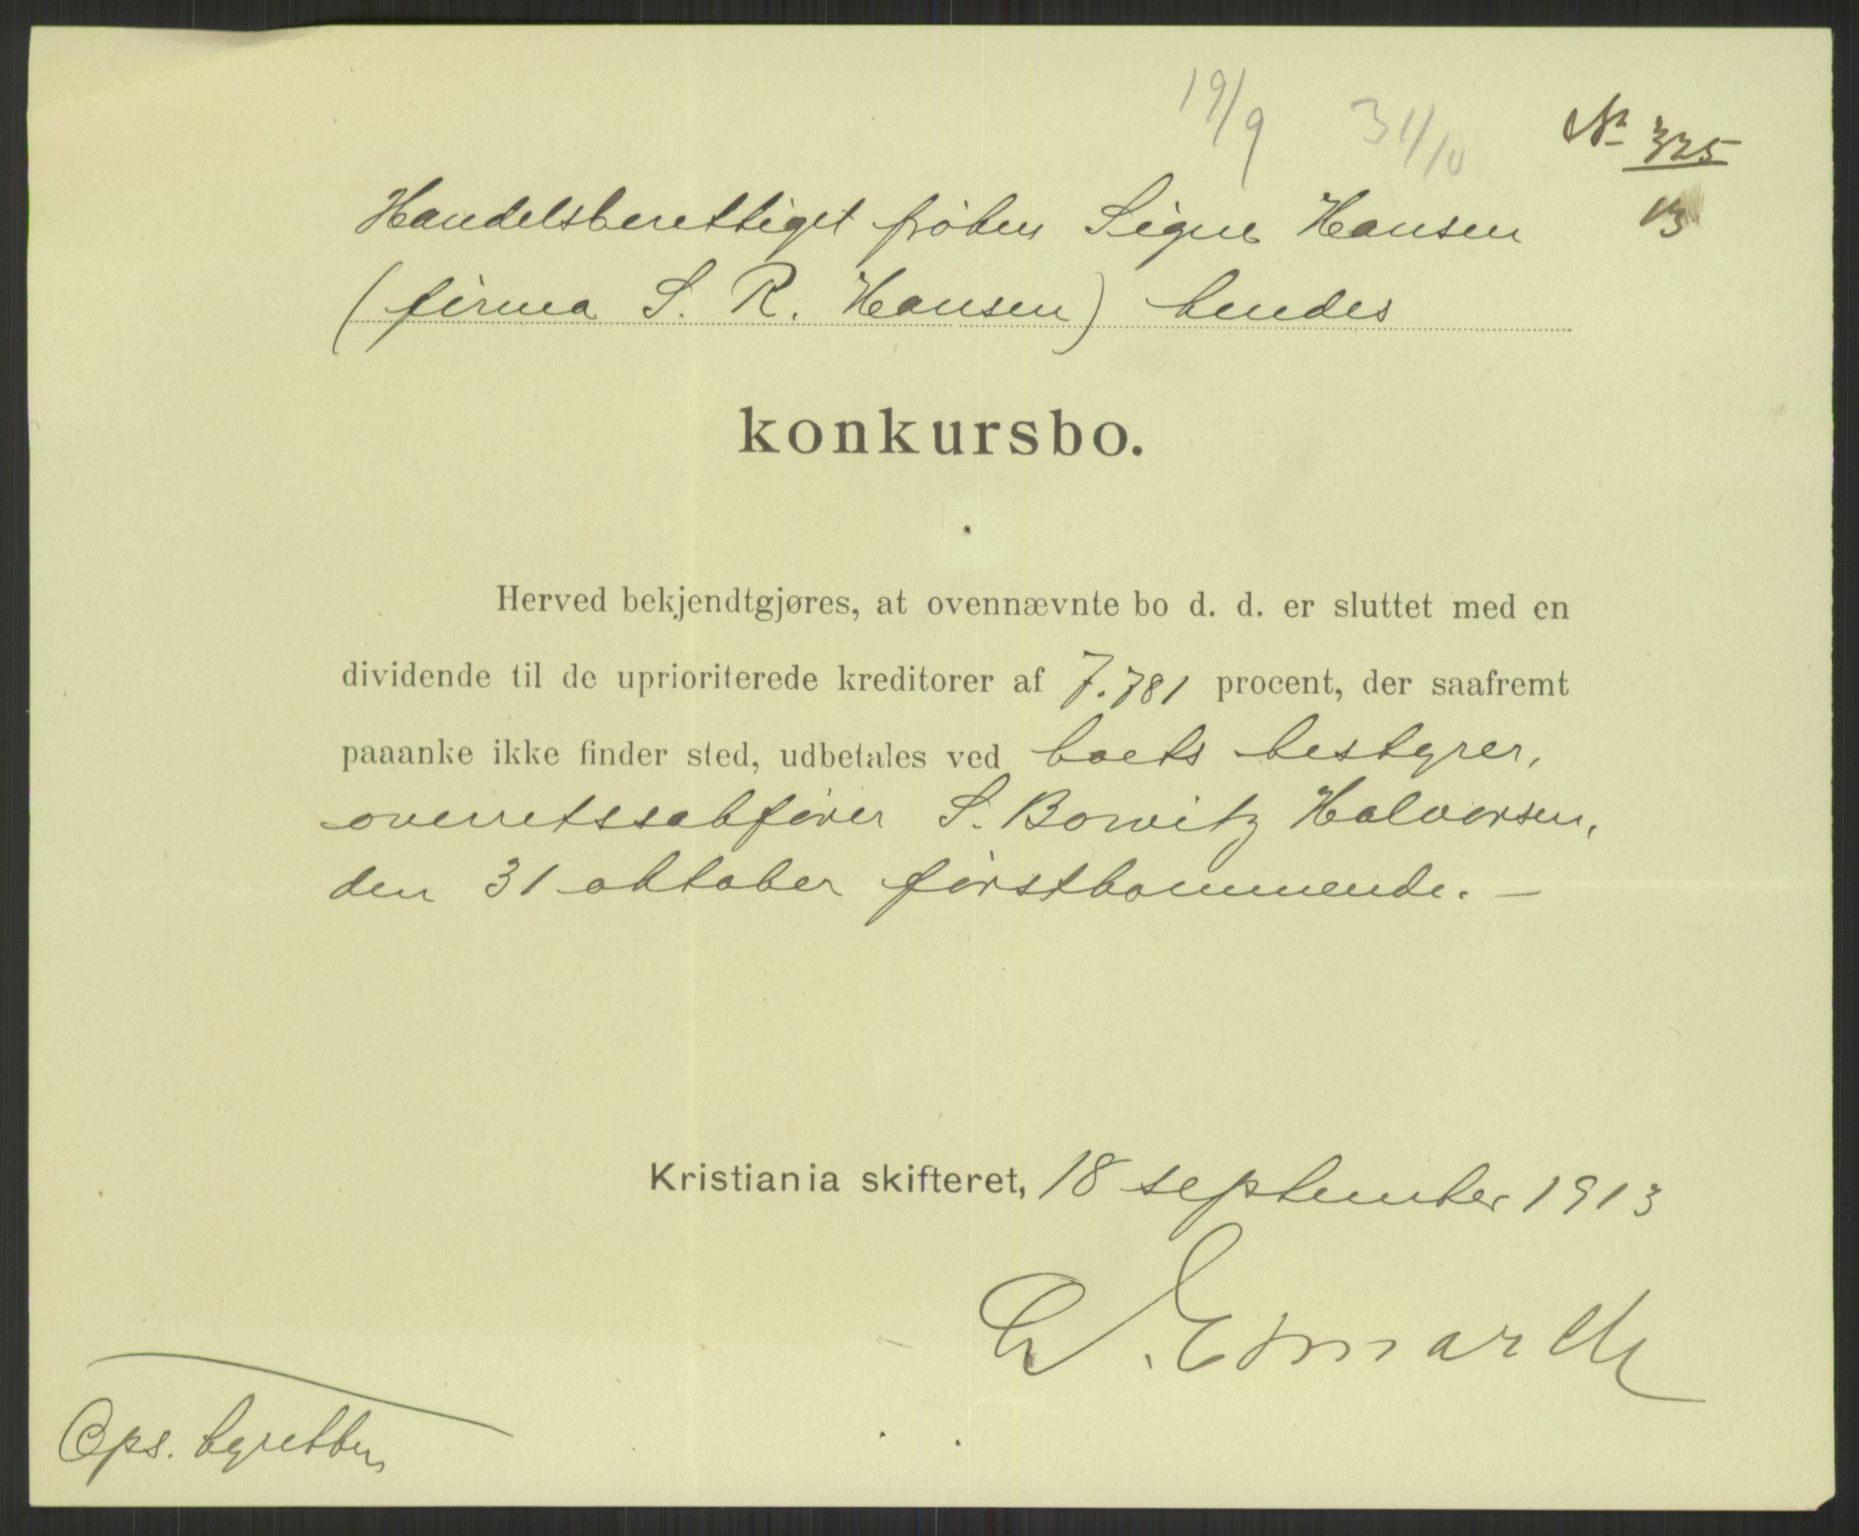 19/9 31/10 No 325
13
Handelsberettiget frøken Signe Hansen
(firma S. R. Hansen) hendes
konkursbo.
Herved bekjendtgjøres, at ovennævnte bo d. d. er sluttet med en
dividende til de uprioriterede kreditorer af 7.781 procent, der saafremt
paaanke ikke finder sted, udbetales ved boets bestyrer,
overretssakfører S. Borvitz Halvorsen,
den 31 oktober førstkommende. —
Kristiania skifteret, 18 september 1913
Ops. byretten